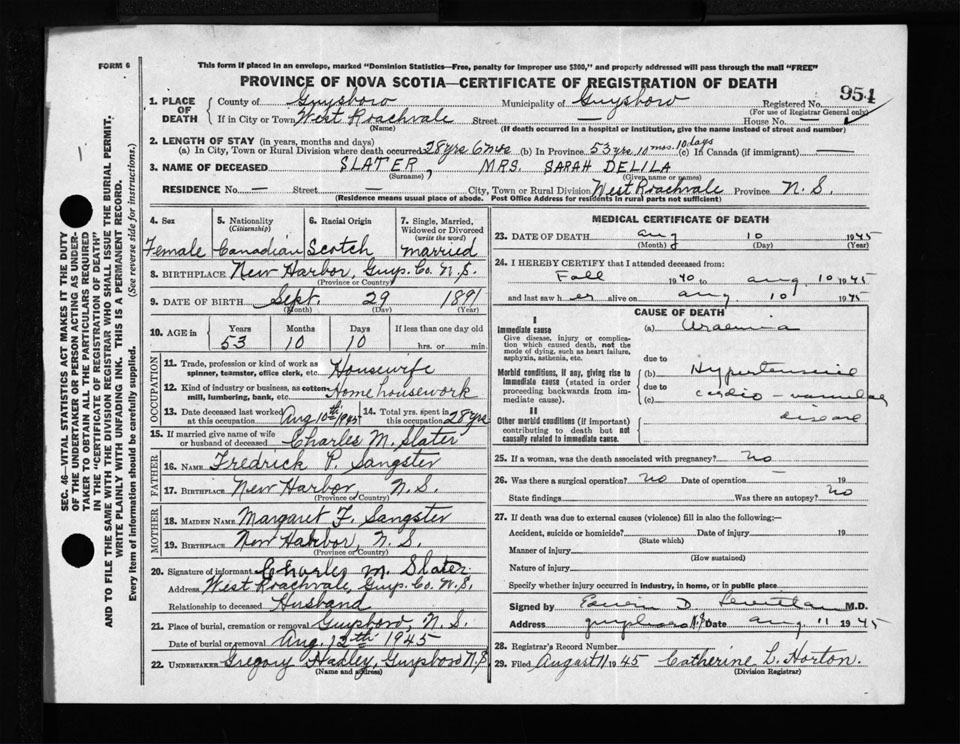 FORM 6
This form if placed in an envelope, marked "Dominion Statistics—Free, penalty for improper use $300," and properly addressed will pass through the mail "FREE"
PROVINCE OF NOVA SCOTIA—CERTIFICATE OF REGISTRATION OF DEATH
954
1. PLACE OF DEATH
County of Guysboro Municipality of Guysboro Registered No.
(For use of Registrar General only)
If in City or Town West Roachvale Street — House No. —
(Name) (If death occurred in a hospital or institution, give the name instead of street and number)
2. LENGTH OF STAY (in years, months and days)
(a) In City, Town or Rural Division where death occurred 28 yrs 6 mos (b) In Province 53 yrs 10 mos. 10 days (c) In Canada (if immigrant) —
3. NAME OF DECEASED SLATER, MRS. SARAH DELILA
(Surname) (Given name or names)
RESIDENCE No. — Street — City, Town or Rural Division West Roachvale Province N. S.
(Residence means usual place of abode. Post Office Address for residents in rural parts not sufficient)
4. Sex Female
5. Nationality (Citizenship) Canadian
6. Racial Origin Scotch
7. Single, Married, Widowed or Divorced (write the word) Married
8. BIRTHPLACE New Harbor, Guys. Co. N. S.
(Province or Country)
9. DATE OF BIRTH Sept. 29 1891
(Month) (Day) (Year)
10. AGE in Years 53 Months 10 Days 10 If less than one day old hrs. or min.
OCCUPATION
11. Trade, profession or kind of work as spinner, teamster, office clerk, etc. Housewife
12. Kind of industry or business, as cotton mill, lumbering, bank, etc. Home housework
13. Date deceased last worked at this occupation Aug 10th 1945
14. Total yrs. spent in this occupation 28 yrs
15. If married give name of wife or husband of deceased Charles M. Slater
FATHER
16. NAME Fredrick P. Sangster
17. BIRTHPLACE New Harbor N. S.
(Province or Country)
MOTHER
18. MAIDEN NAME Margaret F. Sangster
19. BIRTHPLACE New Harbor, N. S.
(Province or Country)
20. Signature of informant Charles M. Slater
Address West Roachvale, Guys. Co. N. S.
Relationship to deceased Husband
21. Place of burial, cremation or removal Guysboro, N. S.
Date of burial or removal Aug. 12th 1945
22. UNDERTAKER Gregory Hadley, Guysboro N. S.
(Name and address)
MEDICAL CERTIFICATE OF DEATH
23. DATE OF DEATH Aug 10 1945
(Month) (Day) (Year)
24. I HEREBY CERTIFY that I attended deceased from:
Fall 1940 to Aug, 10 1945
and last saw her alive on Aug 10 1945
CAUSE OF DEATH
I
Immediate cause
Give disease, injury or complication which caused death, not the mode of dying, such as heart failure, asphyxia, asthenia, etc.
(a) Uraemia
due to
Morbid conditions, if any, giving rise to immediate cause (stated in order proceeding backwards from immediate cause).
(b) Hypertensive
due to
(c) cardio-vascular disease
II
Other morbid conditions (if important) contributing to death but not causally related to immediate cause.
25. If a woman, was the death associated with pregnancy? No
26. Was there a surgical operation? No Date of operation 19
State findings Was there an autopsy? No
27. If death was due to external causes (violence) fill in also the following:—
Accident, suicide or homicide? Date of injury 19
(State which)
Manner of injury
(How sustained)
Nature of injury
Specify whether injury occurred in industry, in home, or in public place
Signed by D. M.D.
Address Guysboro N.S. Date Aug 11 1945
28. Registrar's Record Number
29. Filed August 11 1945 Catherine L. Horton.
(Division Registrar)
SEC. 46—VITAL STATISTICS ACT MAKES IT THE DUTY
OF THE UNDERTAKER OR PERSON ACTING AS UNDER-
TAKER TO OBTAIN ALL THE PARTICULARS REQUIRED
IN THE "CERTIFICATE OF REGISTRATION OF DEATH"
AND TO FILE THE SAME WITH THE DIVISION REGISTRAR WHO SHALL ISSUE THE BURIAL PERMIT.
WRITE PLAINLY WITH UNFADING INK. THIS IS A PERMANENT RECORD.
Every item of information should be carefully supplied. (See reverse side for instructions.)